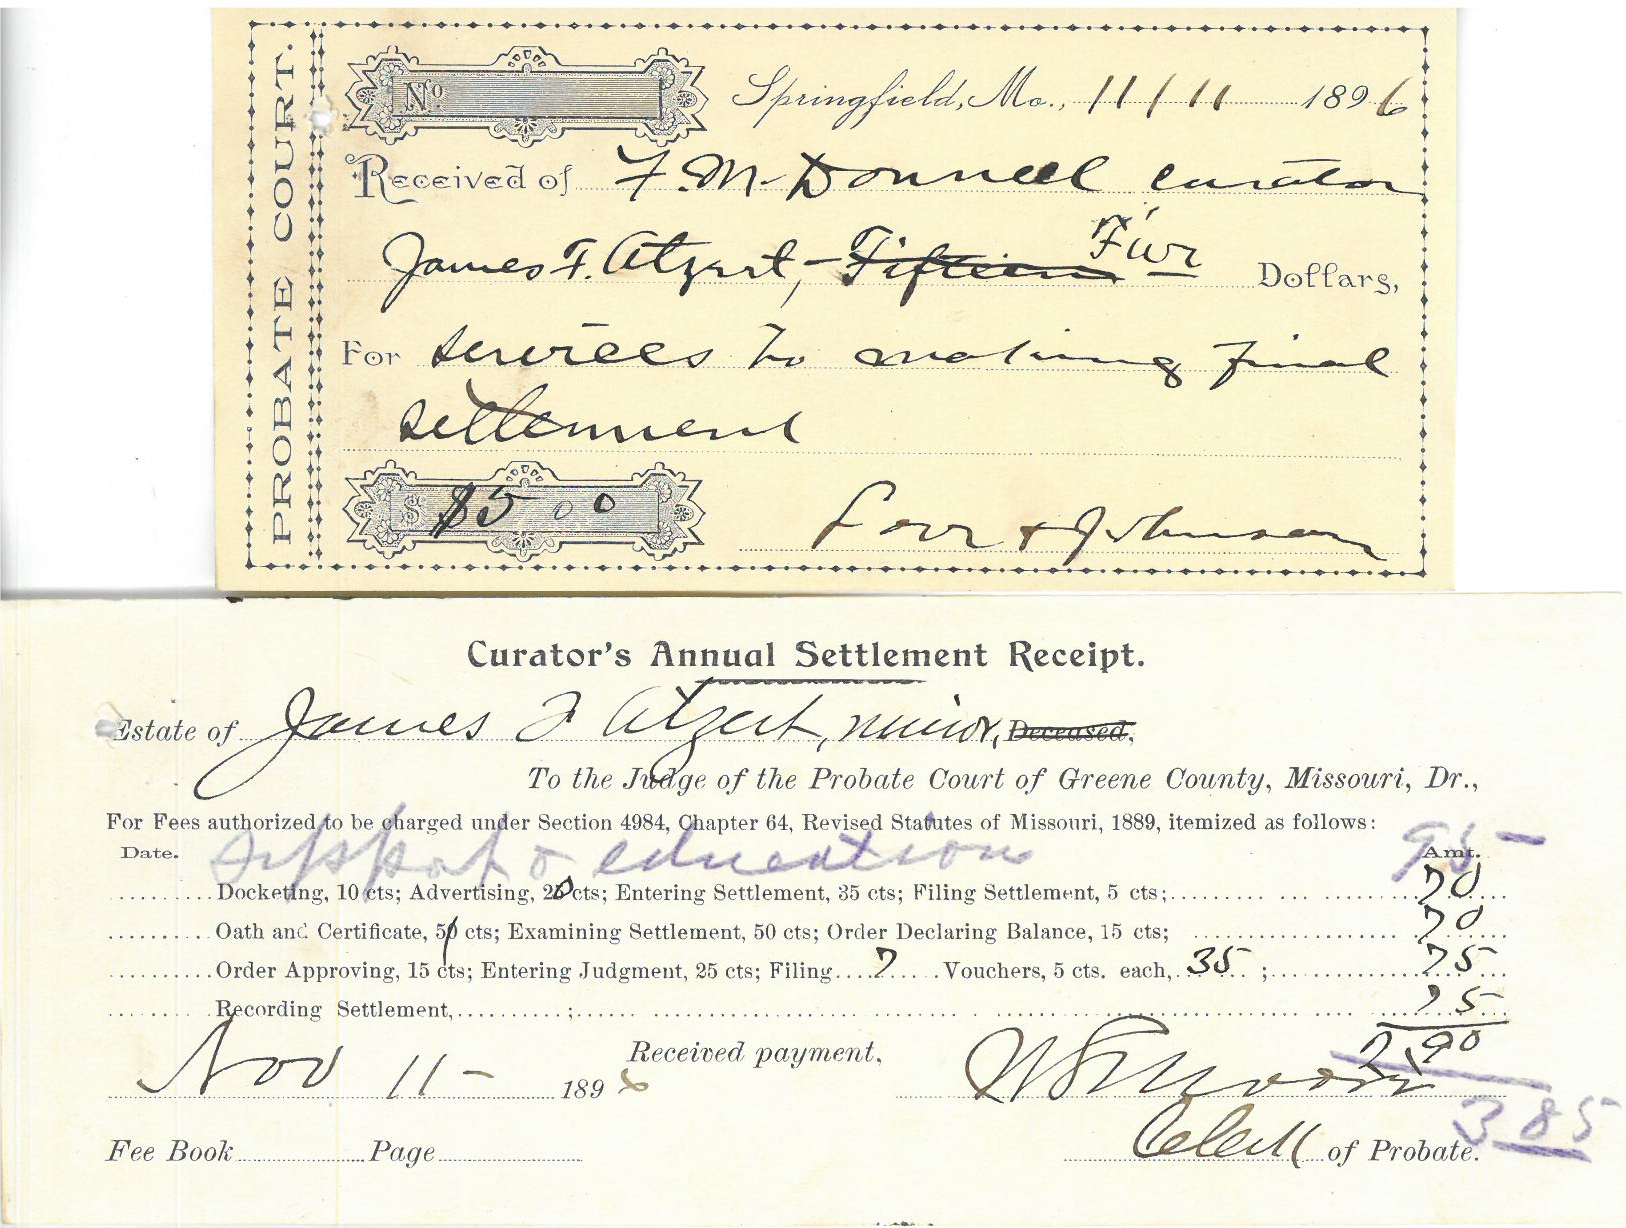 PROBATE COURT.
No
Springfield, Mo., 11/11 1896
Received of F. M. Donnell curator
James F. Atzert, – Fifteen Five Dollars,
For services in making final
settlement
$ $5 00
Farr & Johnson
Curator's Annual Settlement Receipt.
Estate of James F Atzert, minor, Deceased,
To the Judge of the Probate Court of Greene County, Missouri, Dr.,
For Fees authorized to be charged under Section 4984, Chapter 64, Revised Statutes of Missouri, 1889, itemized as follows:
support & education 95 –
Date. Amt.
Docketing, 10 cts; Advertising, 20 cts; Entering Settlement, 35 cts; Filing Settlement, 5 cts; 70
Oath and Certificate, 5 cts; Examining Settlement, 50 cts; Order Declaring Balance, 15 cts; 70
Order Approving, 15 cts; Entering Judgment, 25 cts; Filing 7 Vouchers, 5 cts. each, 35 ; 75
Recording Settlement, ; 75
2.90
Received payment,
Nov 11 – 1896
3 85
Clerk of Probate.
Fee Book Page